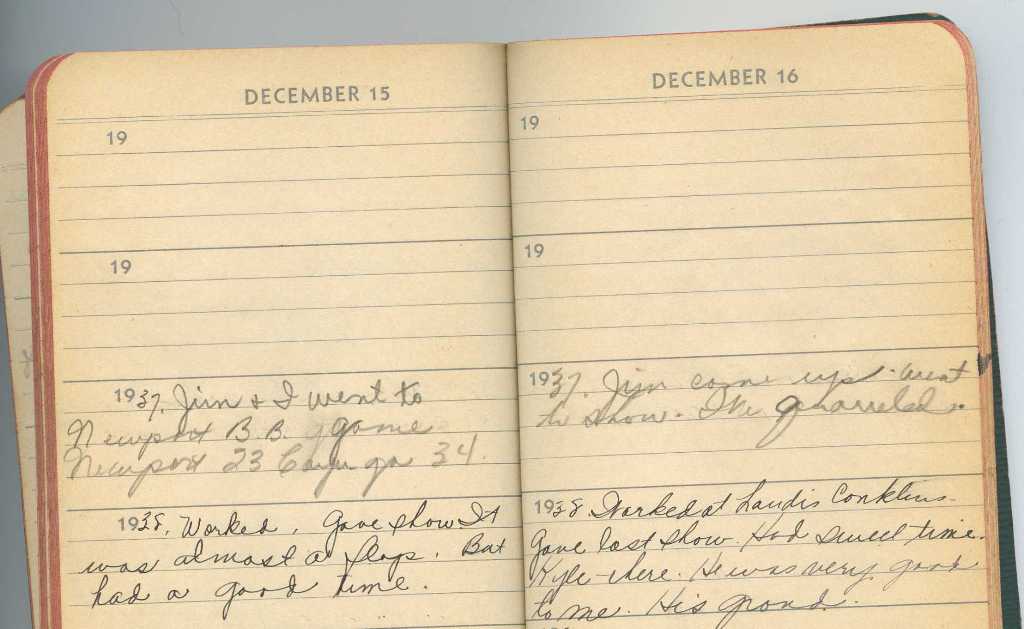 DECEMBER 15
19
19
1937. Jim & I went to
Newport B.B. game
Newport 23 Cayuga 34.
1938. Worked. Gave show It
was almost a flop. But
had a good time.
DECEMBER 16
19
19
1937. Jim come up. went
to show. We quarreled.
1938 Worked at Landis Conklins.
Gave last show. Had swell time.
Kyle there. He was very good
to me. His grand.